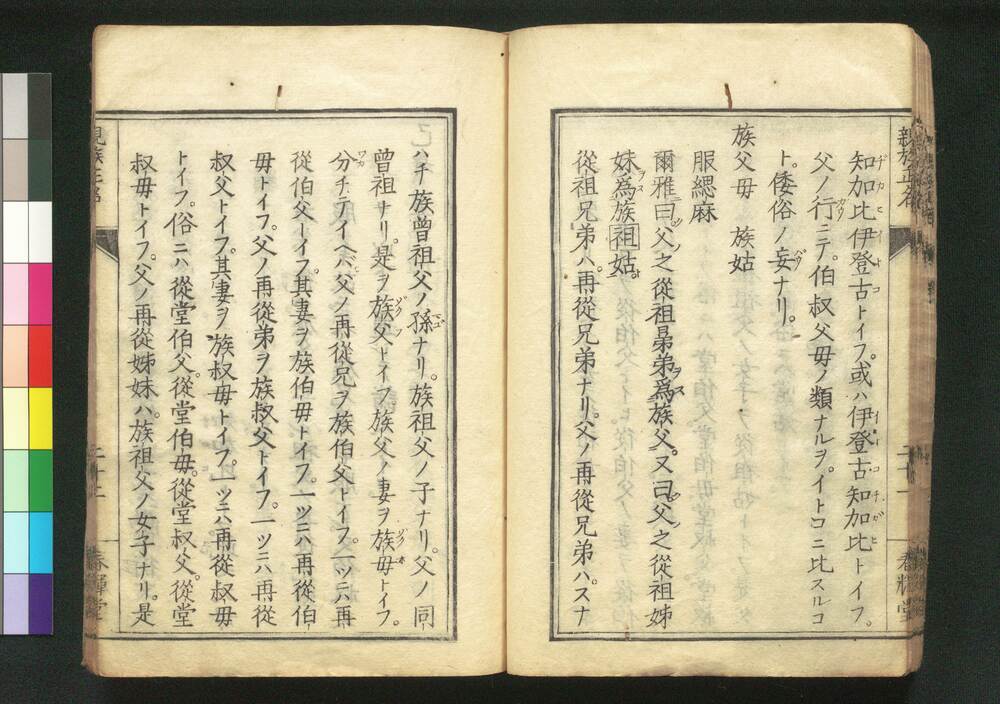 知加比伊登古トイフ。或ハ伊登古知加比トイフ。
父ノ行ニテ。伯叔父毋ノ類ナルヲ。イトコニ比スルコ
ト。倭俗ノ妄ナリ。
族父毋　族姑
服緦麻
爾雅曰。父之從祖晜弟爲族父。又曰。父之從祖姊
妹爲族祖姑。
從祖兄弟ハ。再從兄弟ナリ。父ノ再從兄弟ハ。スナ
ハチ族曾祖父ノ孫ナリ。族祖父ノ子ナリ。父ノ同
曾祖ナリ。是ヲ族父トイフ。族父ノ妻ヲ族毋トイフ。
分チテイヘバ。父ノ再從兄ヲ族伯父トイフ。一ツニハ再
從伯父トイフ。其妻ヲ族伯毋トイフ。一ツニハ再從伯
毋トイフ。父ノ再從弟ヲ族叔父トイフ。一ツニハ再從
叔父トイフ。其妻ヲ族叔毋トイフ。一ツニハ再從叔毋
トイフ。俗ニハ從堂伯父。從堂伯毋。從堂叔父。從堂
叔毋トイフ。父ノ再從姊妹ハ。族祖父ノ女子ナリ。是
親族正名
二十一
春輝堂